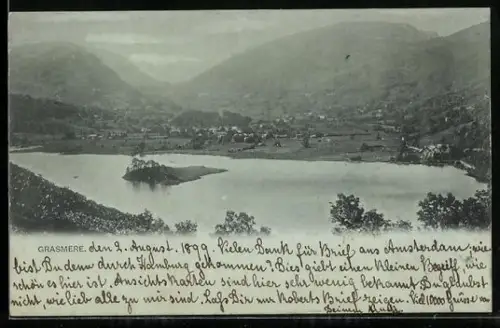 GRASMERE. den 2. August. 1899. Vielen Dank für Brief aus Amsterdam; wie
bist Du denn durch Hamburg gekommen? Dies giebt einen kleinen Begriff, wie
schön es hier ist. Ansichtskarten sind hier sehr wenig bekannt. Du glaubst
nicht, wie lieb alle zu mir sind. Lass Dir nur Roberts Brief zeigen. Viel 1000 Grüsse von
Deinem